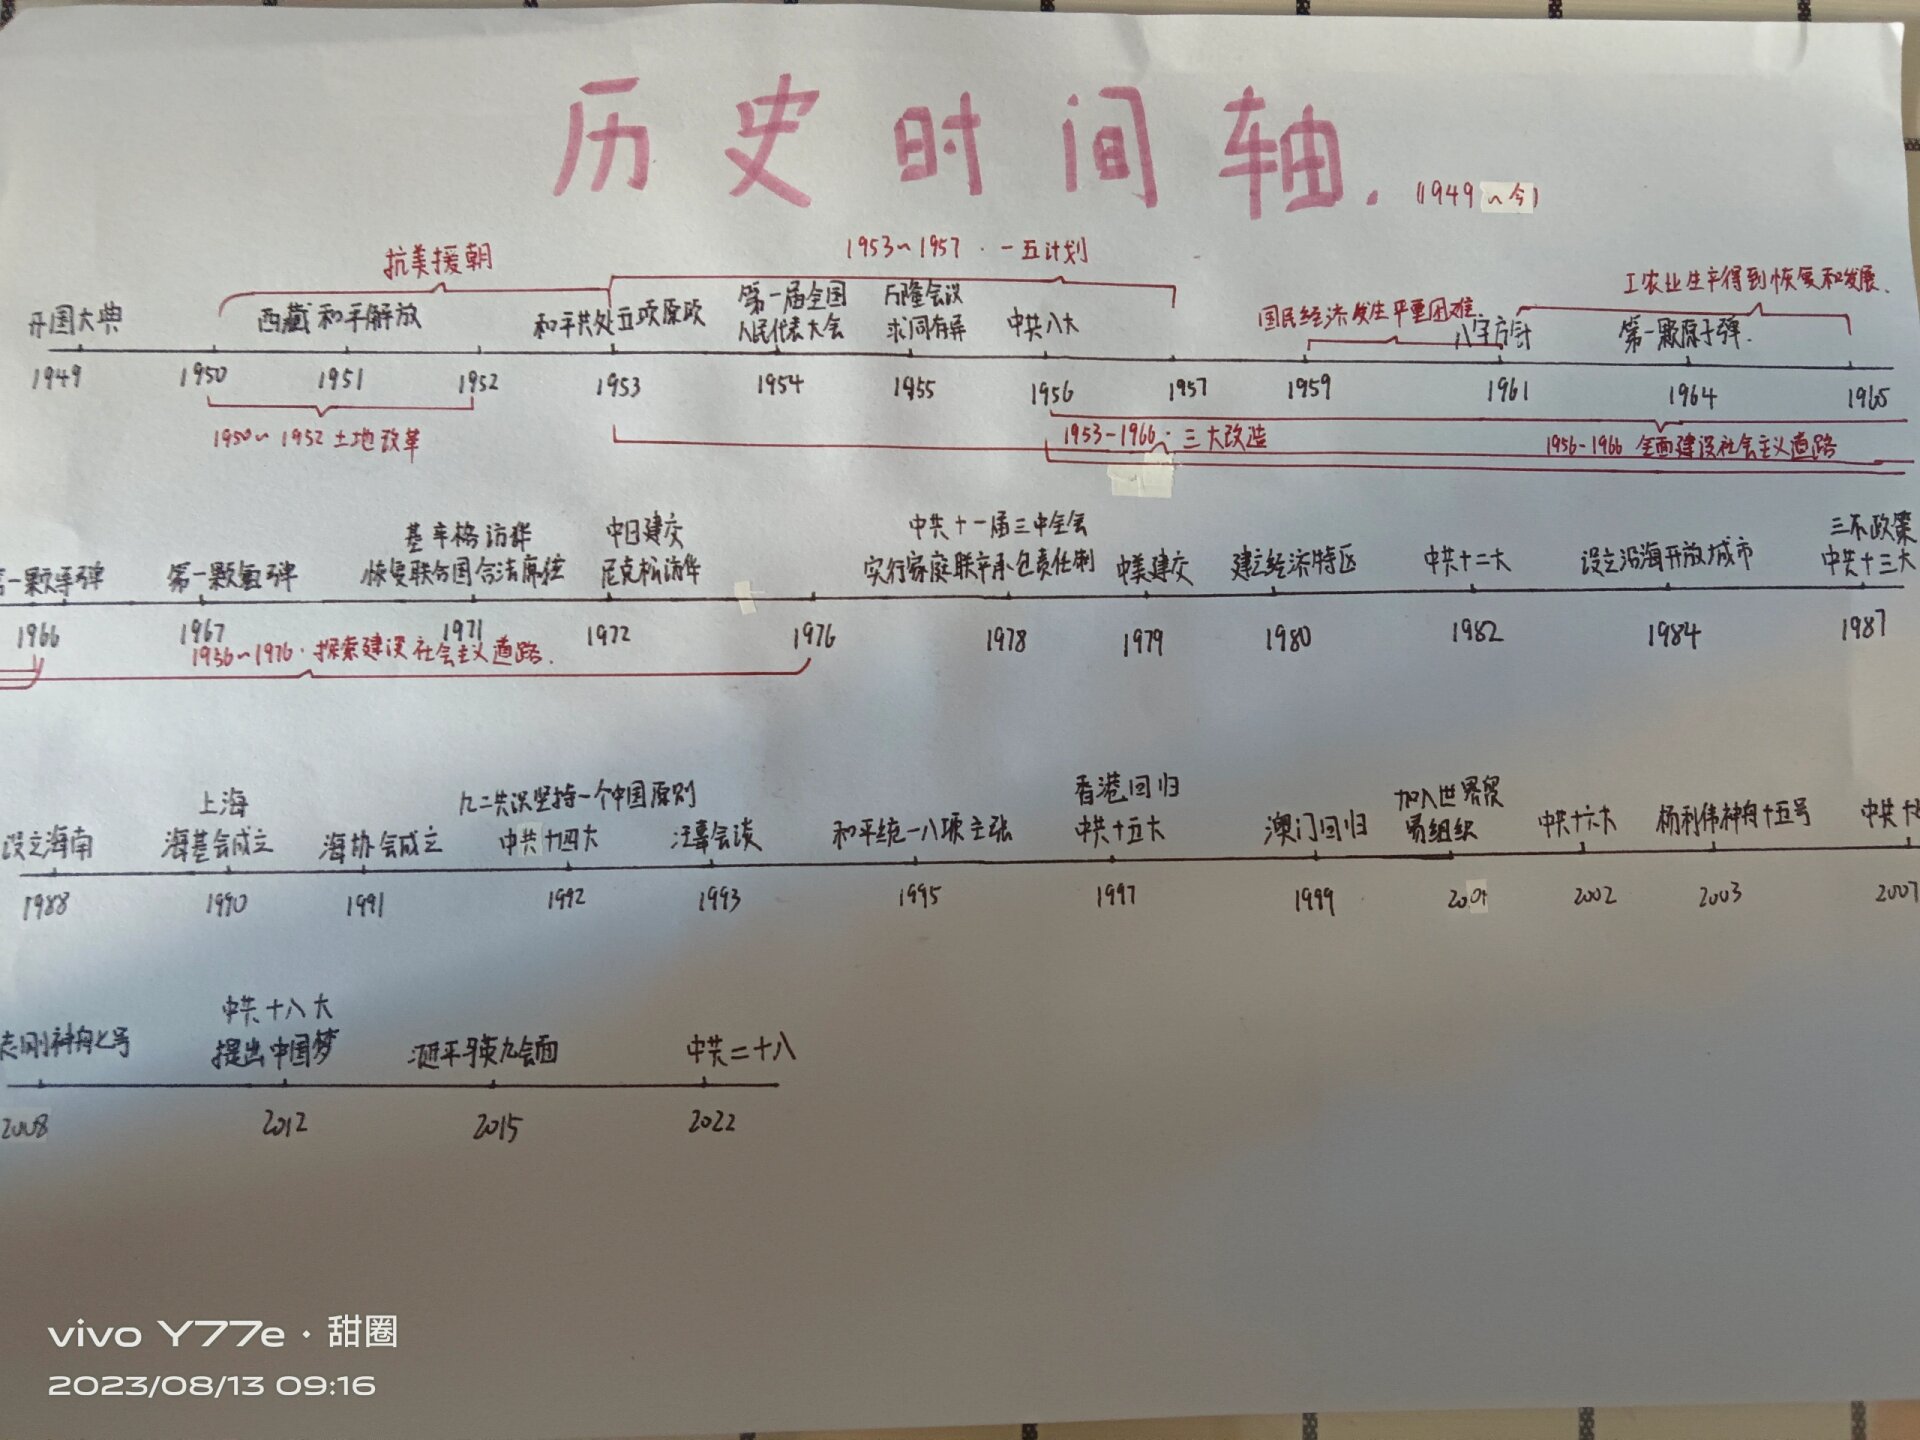 历史时间轴.(1949~今)
抗美援朝
1953~1957·一五计划
工农业生产得到恢复和发展.
国民经济发生严重困难
开国大典
西藏和平解放
和平共处五项原政
第一届全国
人民代表大会
万隆会议
求同存异
中共八大
八字方针
第一颗原子弹.
1949 1950 1951 1952 1953 1954 1955 1956 1957 1959 1961 1964 1965
1950~1952土地改革
1953-1966·三大改造
1956-1966 全面建设社会主义道路
一颗导弹
第一颗氢弹
基辛格访华
恢复联合国合法席位
中日建交
尼克松访华
中共十一届三中全会
实行家庭联产承包责任制
中美建交
建立经济特区
中共十二大
设立沿海开放城市
三不政策
中共十三大
1966 1967 1971 1972 1976 1978 1979 1980 1982 1984 1987
1956~1976·探索建设社会主义道路.
设立海南
上海
海基会成立
海协会成立
九二共识坚持一个中国原则
中共十四大
汪辜会谈
和平统一八项主张
香港回归
中共十五大
澳门回归
加入世界贸
易组织
中共十六大
杨利伟神舟十五号
中共十
1988 1990 1991 1992 1993 1995 1997 1999 2001 2002 2003 2007
志刚神舟七号
中共十八大
提出中国梦
习近平马英九会面
中共二十八
2008 2012 2015 2022
vivo Y77e·甜圈
2023/08/13 09:16